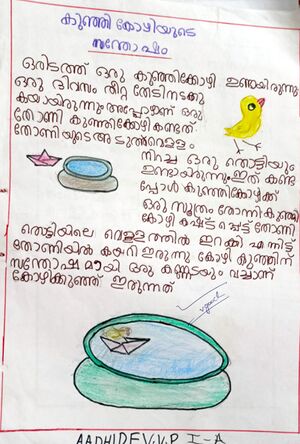 കുഞ്ഞി കോഴിയുടെ
സന്തോഷം
ഒരിടത്ത് ഒരു കുഞ്ഞിക്കോഴി ഉണ്ടായിരുന്നു
ഒരു ദിവസം തീറ്റ തേടിനടക്കു
കയായിരുന്നു അപ്പോഴാണ് ഒരു
തോണി കുഞ്ഞിക്കോഴി കണ്ടത്
തോണിയുടെഅടുത്ത്വെള്ളം
നിറച്ച ഒരു തൊട്ടിയും
ഉണ്ടായിരുന്നു ഇത് കണ്ട
പ്പോൾ കുഞ്ഞിക്കോഴിക്ക്
ഒരു സൂത്രം തോന്നി കുഞ്ഞി
കോഴി കഷ്ട്ടപ്പെട്ട് തോണി
തൊട്ടിയിലെ വെള്ളത്തിൽ ഇറക്കി എന്നിട്ട്
തോണിയിൽ കയറി ഇരുന്നു കോഴി കുഞ്ഞിന്
സന്തോഷമായി ഒരു കണ്ണടയും വച്ചാണ്
കോഴിക്കുഞ്ഞ് ഇരുന്നത്
AADHIDEV.V.P I-A